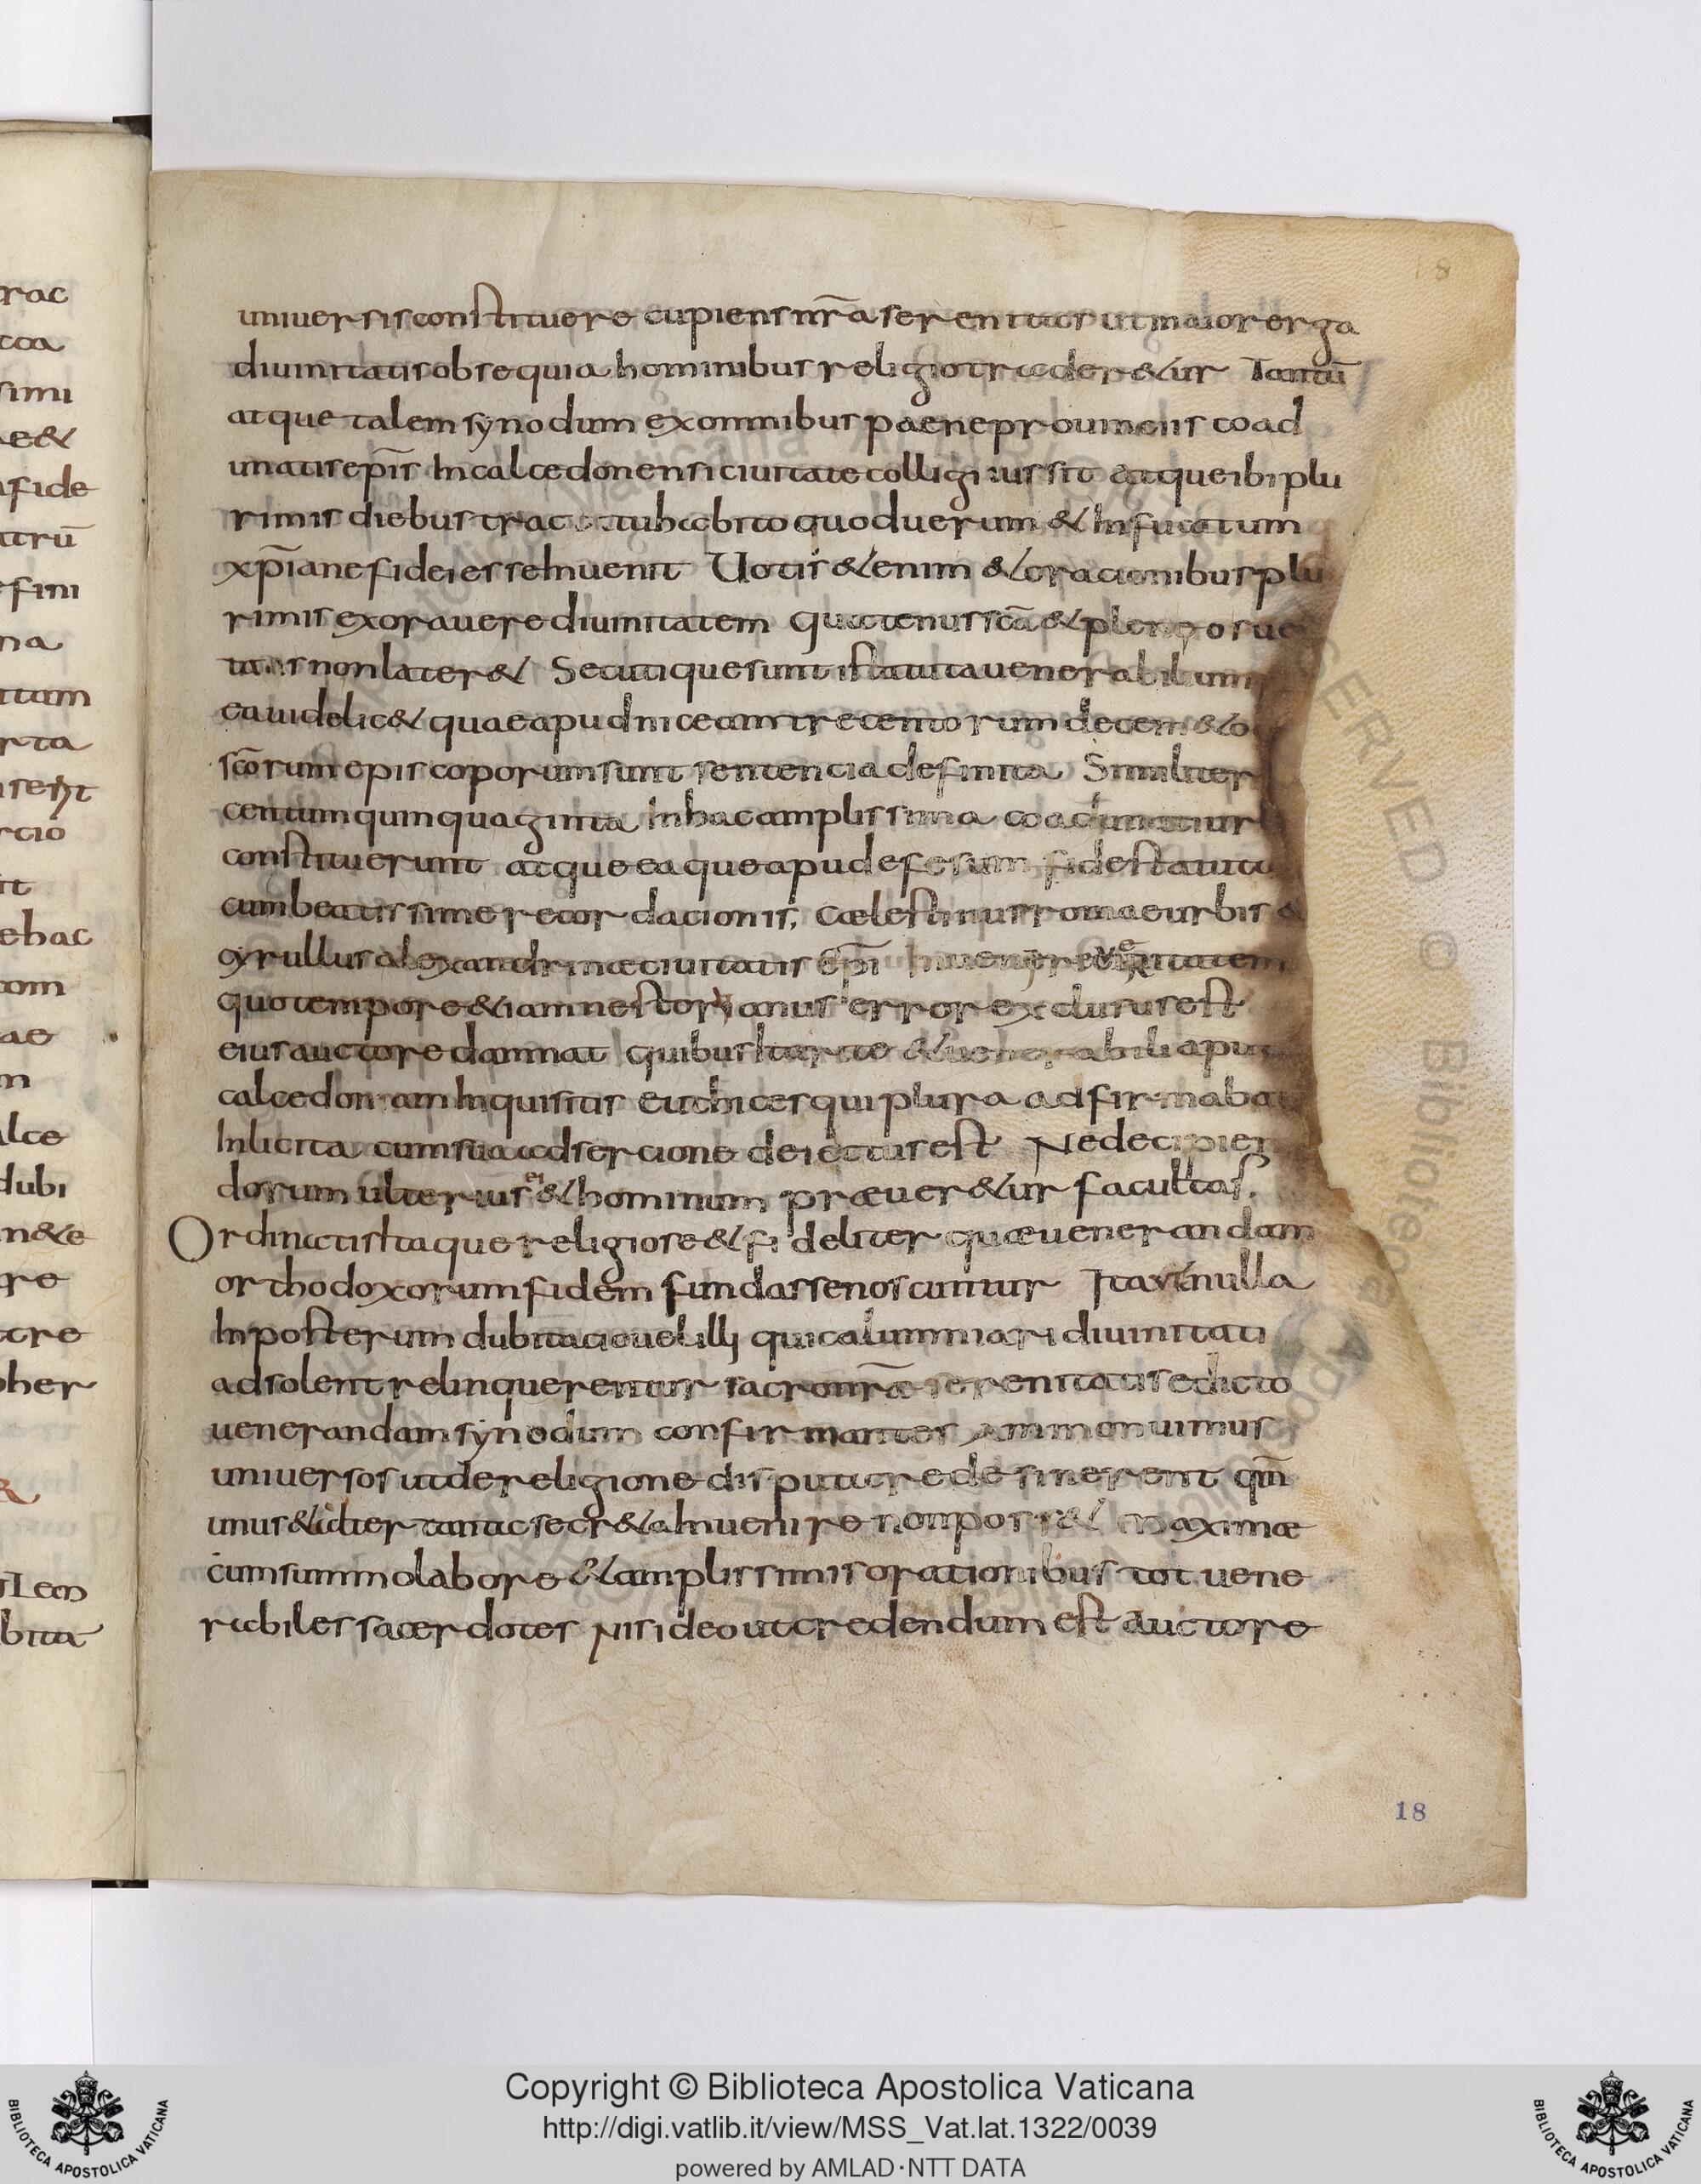 rac
coa
simi
e&
fide
trū
fini
na
tam
rta
rcio
it
ehac
com
ae
m
alce
dubi
n&e
re
cre
her
Leon
bita
18
uniuersis constituere cupiens nr̄a serenitas ut maior erga
diuinitatis obsequia hominibus religio trader&ur Tantū
atque talem synodum ex omnibus paene prouinciis coad
unatis ep̄is In calcedonensi ciuitate colligi iussit atque ibi plu
rimis diebus habito quod uerum & Infucatum
xp̄iane fidei esse Inuenit Uotis &enim & oracionibus plu
rimis exorauere diuinitatem Quatenus sc̄a &
non later& Secutique sunt statuta uenerabilium
ea uidelic& quae apud niceam trecentorum decem &
sc̄orum episcoporum sunt sentencia definita Similiter
centum quinquaginta In hac amplissima
constituerunt atque ea que apud efesum fide statuta
cum beatissime recordacionis; Cælestinus romae urbis
cyrullus alexandrinæ ciuitatis ep̄i Inuenere ueritatem
quo tempore &iam nestorianus error exclusus est
eius auctore damnat Quibus Itaque & uenerabili apud
calcedonam Inquisitis eutices qui plura adfirmaba
Inlicita cum sua adsercione deiectus est Ne decipien
dorum ulterius ei & hominum præuer&ur facultas.
Ordinatis Itaque religiose & fideliter quæ uenerandam
orthodoxorum fidem fundasse noscuntur Ita ut nulla
In posterum dubitacio uel illi qui calumniari diuinitati
adsolent relinquerentur sacro nr̄æ serenitatis edicto
uenerandam synodum confirmantes ammonuimus
uniuersos ut de religione disputare desinerent qm̄
unus & alter tanta secr&a Inuenire non poss& maximæ
cum summo labore & amplissimis orationibus tot uene
rabiles sacerdotes Nisi deo ut credendum est auctore
18
Copyright © Biblioteca Apostolica Vaticana
http://digi.vatlib.it/view/MSS_Vat.lat.1322/0039
powered by AMLAD·NTT DATA
BIBLIOTECA APOSTOLICA VATICANA
BIBLIOTECA APOSTOLICA VATICANA